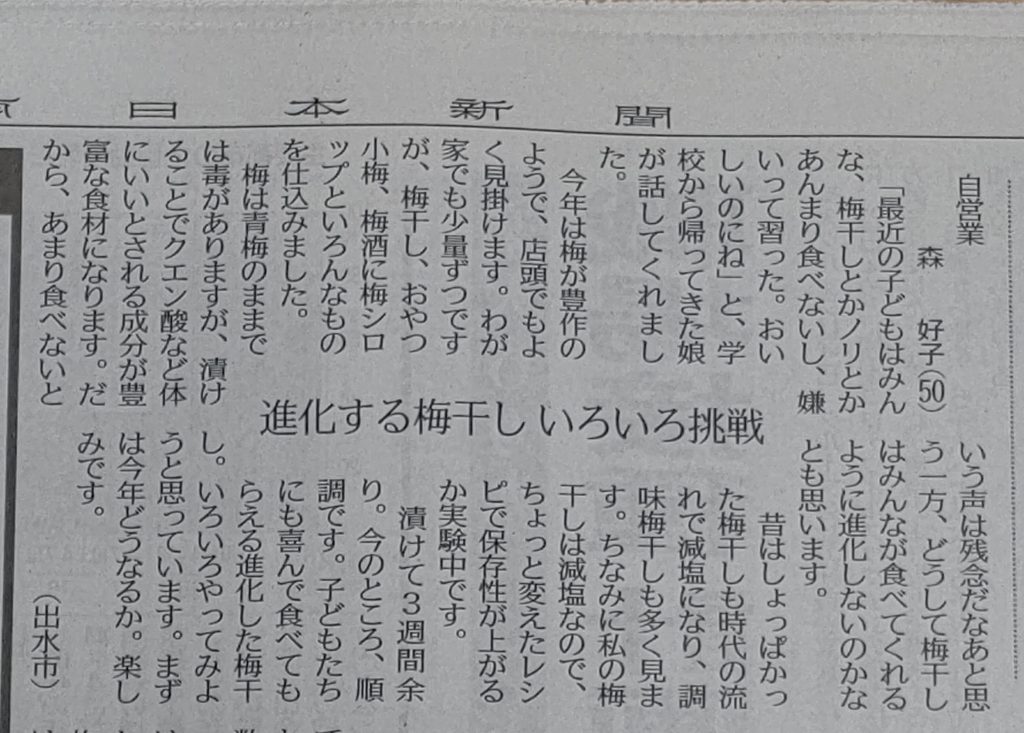 日本新聞
進化する梅干し いろいろ挑戦
自営業
森 好子(50)
「最近の子どもはみん
な、梅干しとかノリとか
あんまり食べないし、嫌
いって習った。おい
しいのにね」と、学
校から帰ってきた娘
が話してくれまし
た。
今年は梅が豊作の
ようで、店頭でもよ
く見掛けます。わが
家でも少量ずつです
が、梅干し、おやつ
小梅、梅酒に梅シロ
ップといろんなもの
を仕込みました。
梅は青梅のままで
は毒がありますが、漬け
ることでクエン酸など体
にいいとされる成分が豊
富な食材になります。だ
から、あまり食べないと
いう声は残念だなあと思
う一方、どうして梅干し
はみんなが食べてくれる
ように進化しないのかな
とも思います。
昔はしょっぱかっ
た梅干しも時代の流
れで減塩になり、調
味梅干しも多く見ま
す。ちなみに私の梅
干しは減塩なので、
ちょっと変えたレシ
ピで保存性が上がる
か実験中です。
漬けて3週間余
り。今のところ、順
調です。子どもたち
にも喜んで食べても
らえる進化した梅干
し。いろいろやってみよ
うと思っています。まず
は今年どうなるか。楽し
みです。
(出水市)